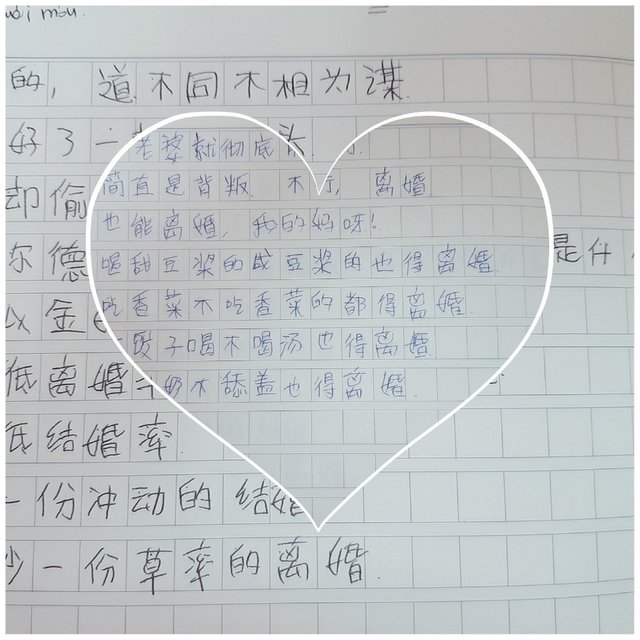 的，道不同不相为谋.
好了一
却偷
尔德
是什
金
低离婚
低结婚率.
一份冲动的结婚
少一份草率的离婚.
老婆就彻底
简直是背叛. 不行，离婚
也能离婚，我的妈呀！
喝甜豆浆的咸豆浆的也得离婚.
吃香菜不吃香菜的都得离婚.
饺子喝不喝汤也得离婚
奶不舔盖也得离婚.